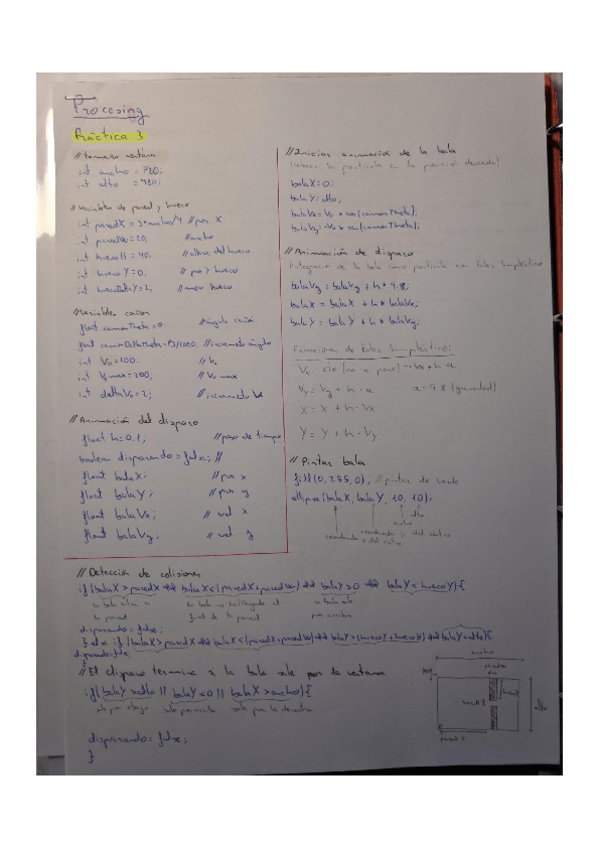 Procesing
Práctica 3
// tamaño ventana
int ancho = 720;
int alto = 480;
// Variables de pared y hueco
int paredX = 3*ancho/4 // pos X
int paredW = 20; // ancho
int huecoH = 40; // altura del hueco
int huecoY = 0; // pos Y hueco
int huecoDeltaY = 4; // mov hueco
// Variables cañon
float canonTheta = 0; // ángulo cañon
float canonDeltaTheta = PI/1000; // incremento ángulo
int Vo = 100; // Vo
int Vomax = 200; // Vo max
int deltaVo = 2; // incremento Vo
// Animación del disparo
float h = 0.1; // paso de tiempo
boolean disparando = false; //
float balaX; // pos x
float balaY; // pos y
float balaVx; // vel x
float balaVy; // vel y
// Iniciar animación de la bala
balaX = 0;
balaY = alto;
balaVx = Vo * cos(canonTheta);
balaVy = -Vo * sin(canonTheta);
// Animación de disparo
Integración de la bala como partícula con Euler Simpléctico
balaVy = balaVy + h * 9.8;
balaX = balaX + h * balaVx;
balaY = balaY + h * balaVy;
Ecuaciones de Euler Simpléctico:
Vy = Vy + h · a a = 9.8 (gravedad)
X = X + h · Vx
Y = Y + h · Vy
// Pintar bala
fill(0, 255, 0); // pintar de verde
ellipse(balaX, balaY, 10, 10);
alto
ancho
coordenada y del centro
coordenada x del centro
// Detección de colisiones
if(balaX > paredX && balaX < (paredX + paredW) && balaY > 0 && balaY < huecoY){
disparando = false;
} else if (balaX > paredX && balaX < (paredX + paredW) && balaY > (huecoY + huecoH) && balaY < alto){
disparando = false;
}
// El disparo termina si la bala sale por la ventana
if(balaY > alto || balaY < 0 || balaX > ancho){
sale por abajo sale por arriba sale por la derecha
disparando = false;
}
ancho
paredW
alto
paredX